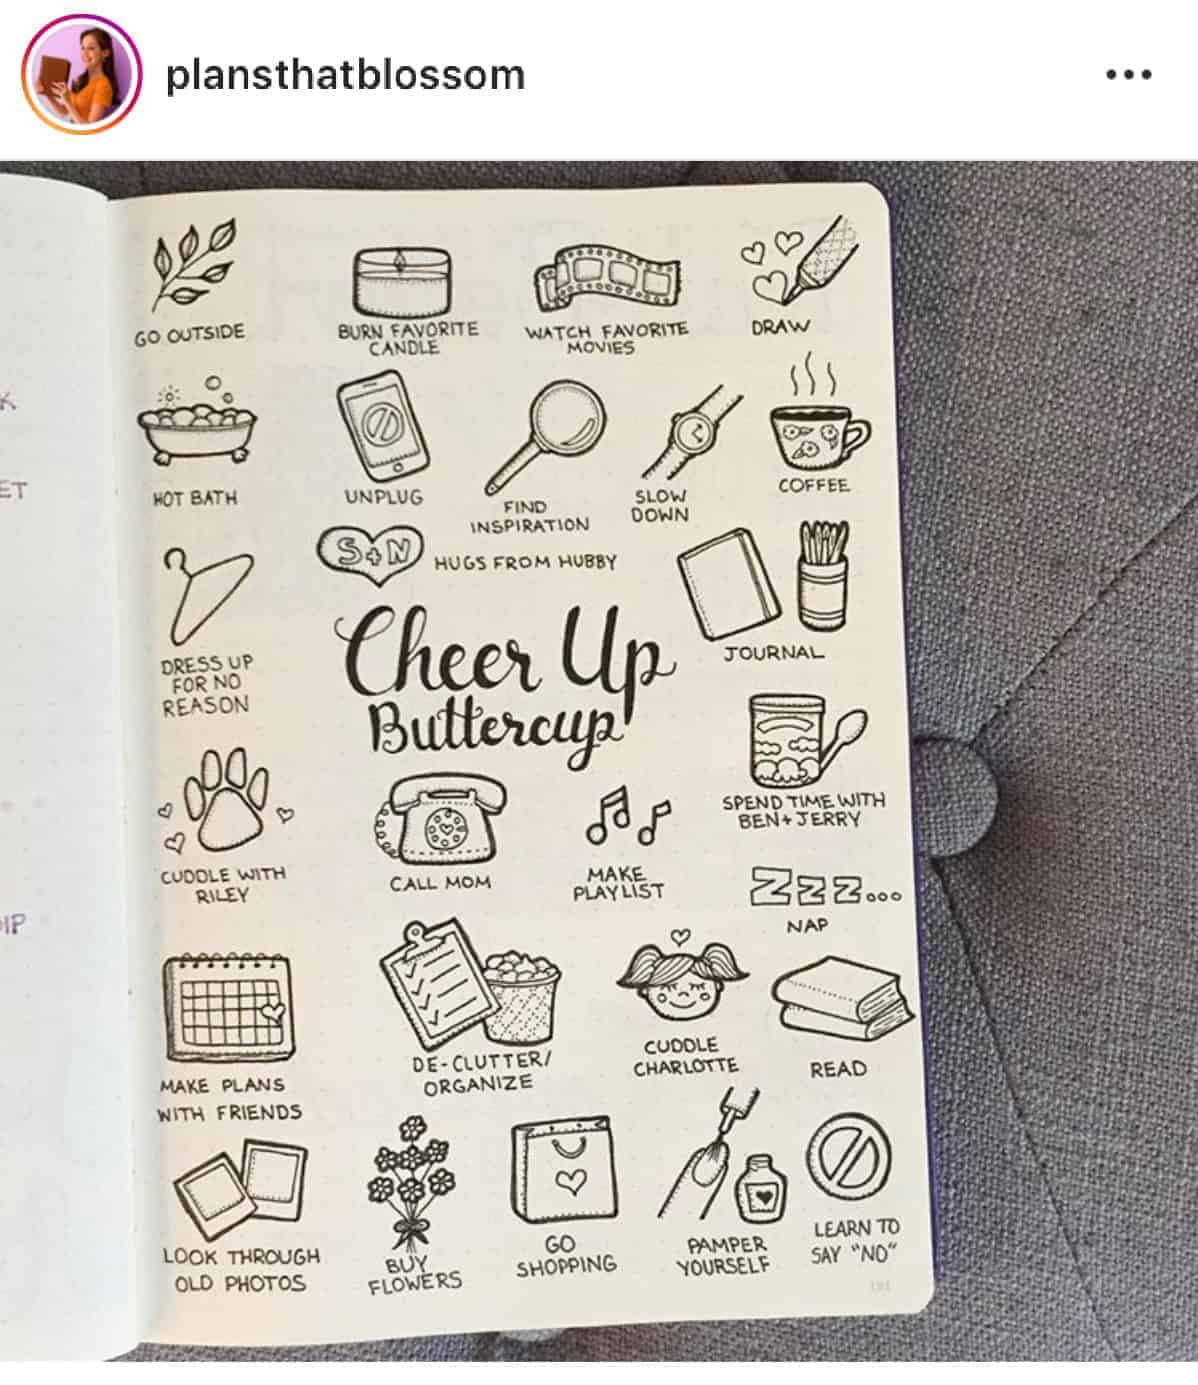 plansthatblossom
GO OUTSIDE
BURN FAVORITE
CANDLE
WATCH FAVORITE
MOVIES
DRAW
HOT BATH
UNPLUG
FIND
INSPIRATION
SLOW
DOWN
COFFEE
S+N
HUGS FROM HUBBY
DRESS UP
FOR NO
REASON
Cheer Up
Buttercup
JOURNAL
SPEND TIME WITH
BEN+JERRY
CUDDLE WITH
RILEY
CALL MOM
MAKE
PLAYLIST
Zzz...
NAP
MAKE PLANS
WITH FRIENDS
DE-CLUTTER/
ORGANIZE
CUDDLE
CHARLOTTE
READ
LOOK THROUGH
OLD PHOTOS
BUY
FLOWERS
GO
SHOPPING
PAMPER
YOURSELF
LEARN TO
SAY "NO"
K
ET